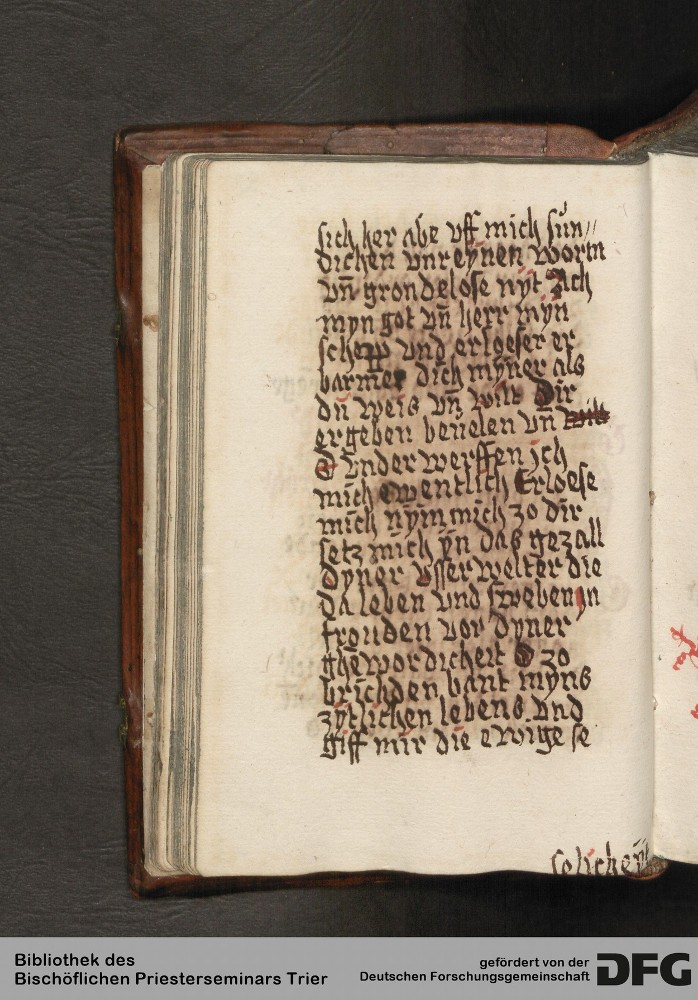 sich her abe vff mich sün//
dichen vnreynen worm
vn̄ grondelose nyt Ach
myn got vn̄ herr myn
schepp vnd erloeser er
barmer dich myner als
du weis vn̄ wilt Dir
ergeben beuelen vn̄
O vnder werffen ich
mich ewentlich Erloese
mich nym mich zo dir
setz mich yn das gezall
Dyner vsserwelter die
da leben vnd sweben yn
frouden vor dyner
ghewordicheit O zo
brichden bant myns
zytlichen lebens vnd
giff mir die ewige se
solicheyt
Bibliothek des
Bischöflichen Priesterseminars Trier
gefördert von der
Deutschen Forschungsgemeinschaft
DFG